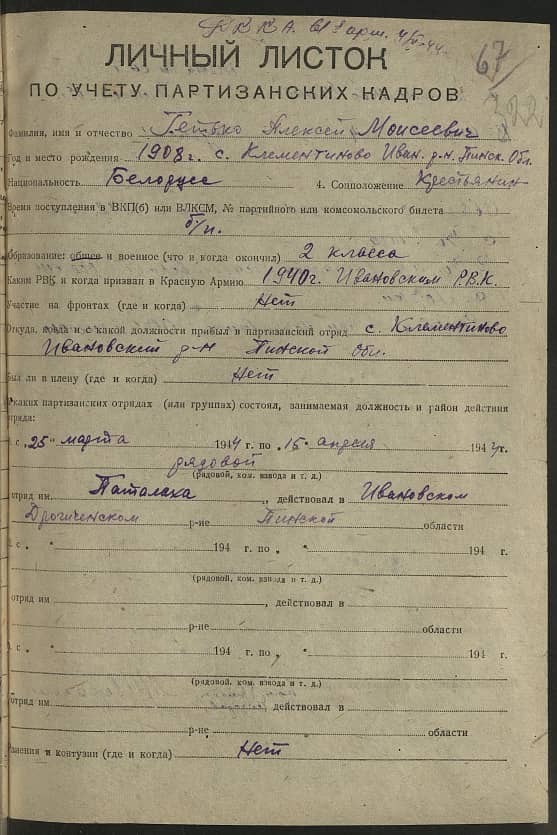 РККА. 61 арм. 4/V-44.
67
322
ЛИЧНЫЙ ЛИСТОК
ПО УЧЕТУ ПАРТИЗАНСКИХ КАДРОВ
Фамилия, имя и отчество Гетько Алексей Моисеевич
Год и место рождения 1908г. с. Клементиново Иван. р-н. Пинск. Обл.
Национальность Белорусс 4. Соцположение Крестьянин
Время поступления в ВКП(б) или ВЛКСМ, № партийного или комсомольского билета
б/п.
Образование: общее и военное (что и когда окончил) 2 класса
Каким РВК и когда призван в Красную Армию 1940г. Ивановским Р.В.К.
Участие на фронтах (где и когда) Нет
Откуда, когда и с какой должности прибыл в партизанский отряд с. Клементиново
Ивановский р-н Пинской Обл.
Был ли в плену (где и когда) Нет
В каких партизанских отрядах (или группах) состоял, занимаемая должность и район действия
отряда:
с „25" марта 1944 г. по „15" апреля 1944 г.
рядовой
(рядовой, ком. взвода и т. д.)
отряд им. Паталаха „, действовал в Ивановском
Дрогиченском р-не Пинской области
с „ " 194 г. по „ " 194 г.
(рядовой, ком. взвода и т. д.)
отряд им , действовал в
р-не области
с „ " 194 г. по „ " 194 г.
(рядовой, ком. взвода и т. д.)
отряд им , действовал в
р-не области
Ранения и контузии (где и когда) Нет